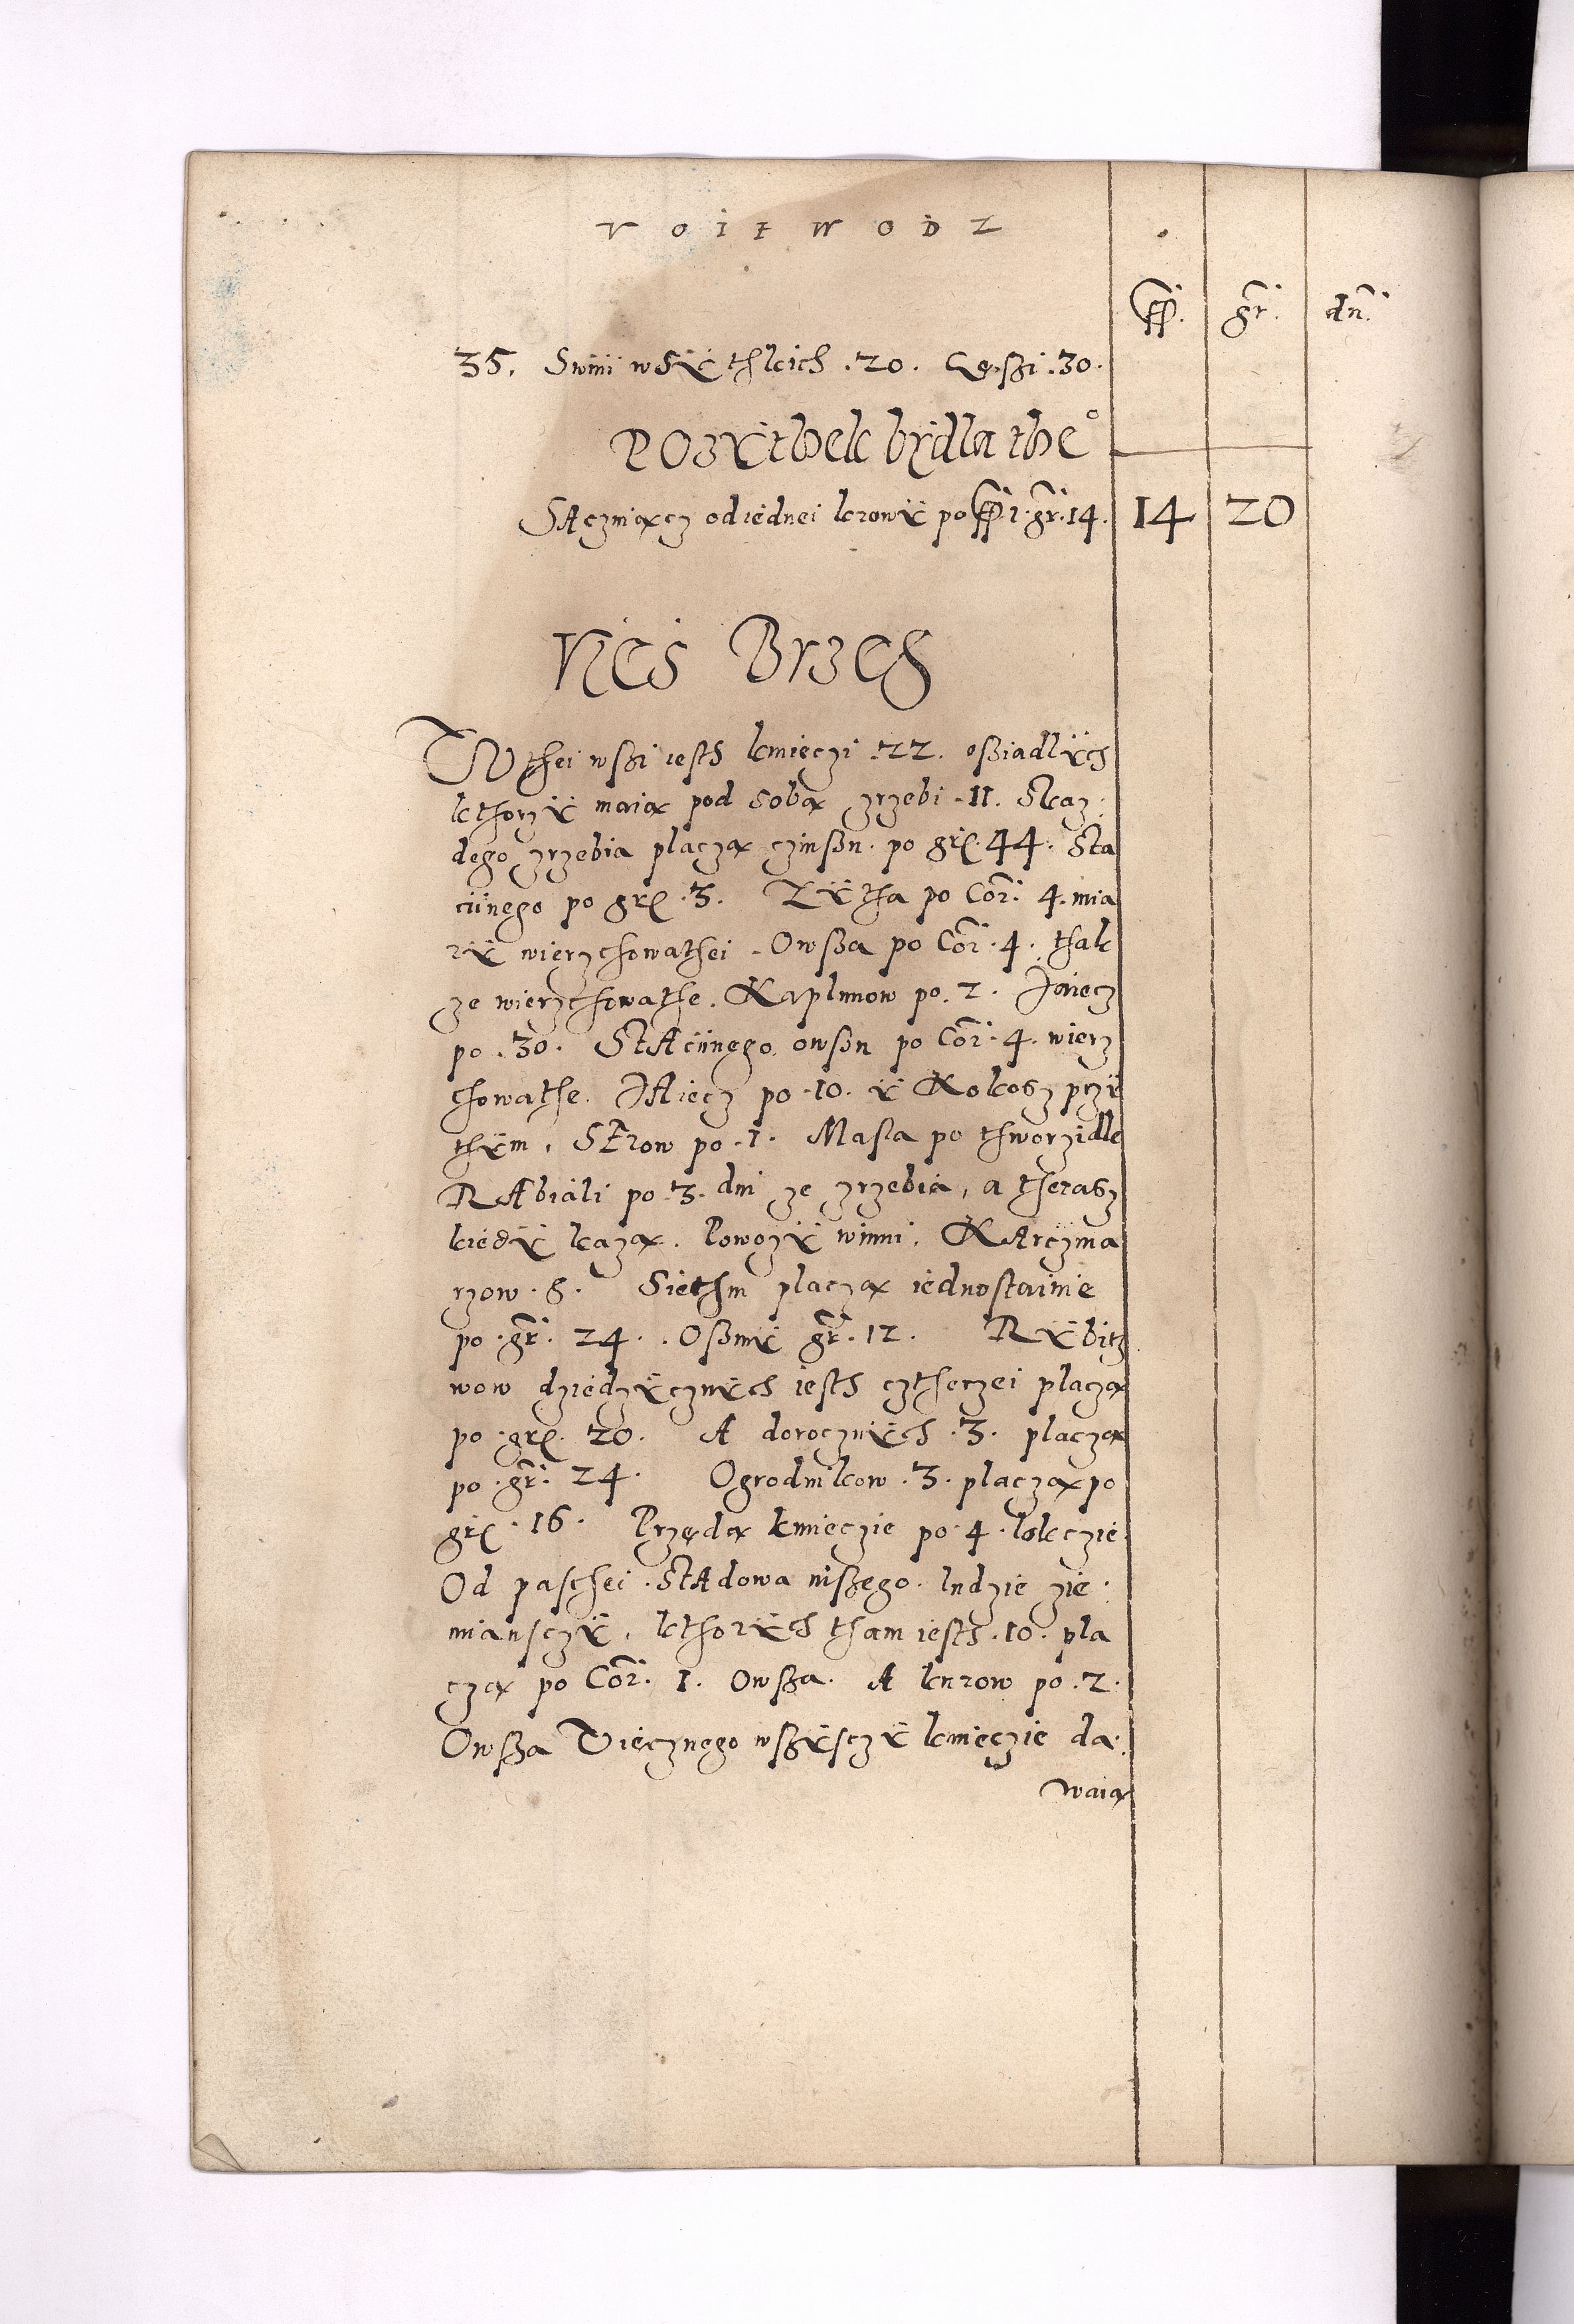 VOIEWODZ
ff. gr. dn.
35. Swini wsÿthkich .20. Gęßi .30.
POZYthek bÿdla the°
SAcziącz od iednei krowÿ po ff 1. gr. 14. 14 20
VIEŚ BrzEG
W thei wßi iesth kmieczi .22. oßiadlÿch
kthorzÿ maią pod sobą zrzebi .11. Skaz
dego zrzebia placzą czinßu. po grß. 44. Sta
ciinego po grß .3. ZÿTha po Cor. 4. mia
rÿ wierzchowathei. Owßa po Cor. 4. thak
ze wierzchowathe. Kaplunow po .2. Jaiecz
po .30. StAciinego owßu po Cor. 4. wierz
chowathe. JAiecz po .10. ÿ Kokosz przÿ
thÿm. SErow po .1. Masla po thworzidle
RAbiali po .3. dni ze zrzebia, a therasz
kiedÿ kazą. Powozÿ winni. KArczma
rzow .8. Siethm placzą iednostainie
po gr. 24. Oßmÿ gr. 12. RÿbitZ
wow dziedzÿcznÿch iesth cztherzei placzą
po grß. 20. A dorocznÿch .3. placzą
po gr. 24. Ogrodnikow .3. placzą po
grß .16. Przędą kmieczie po .4. lokczie
Od paschei StAdowa nißzego. ludzie zie
miansczÿ, kthorÿch tham iesth .10. pla
czą po Cor. 1. Owßa. A kurow po .2.
Owßa Viecznego wßÿsczÿ kmieczie da
waią